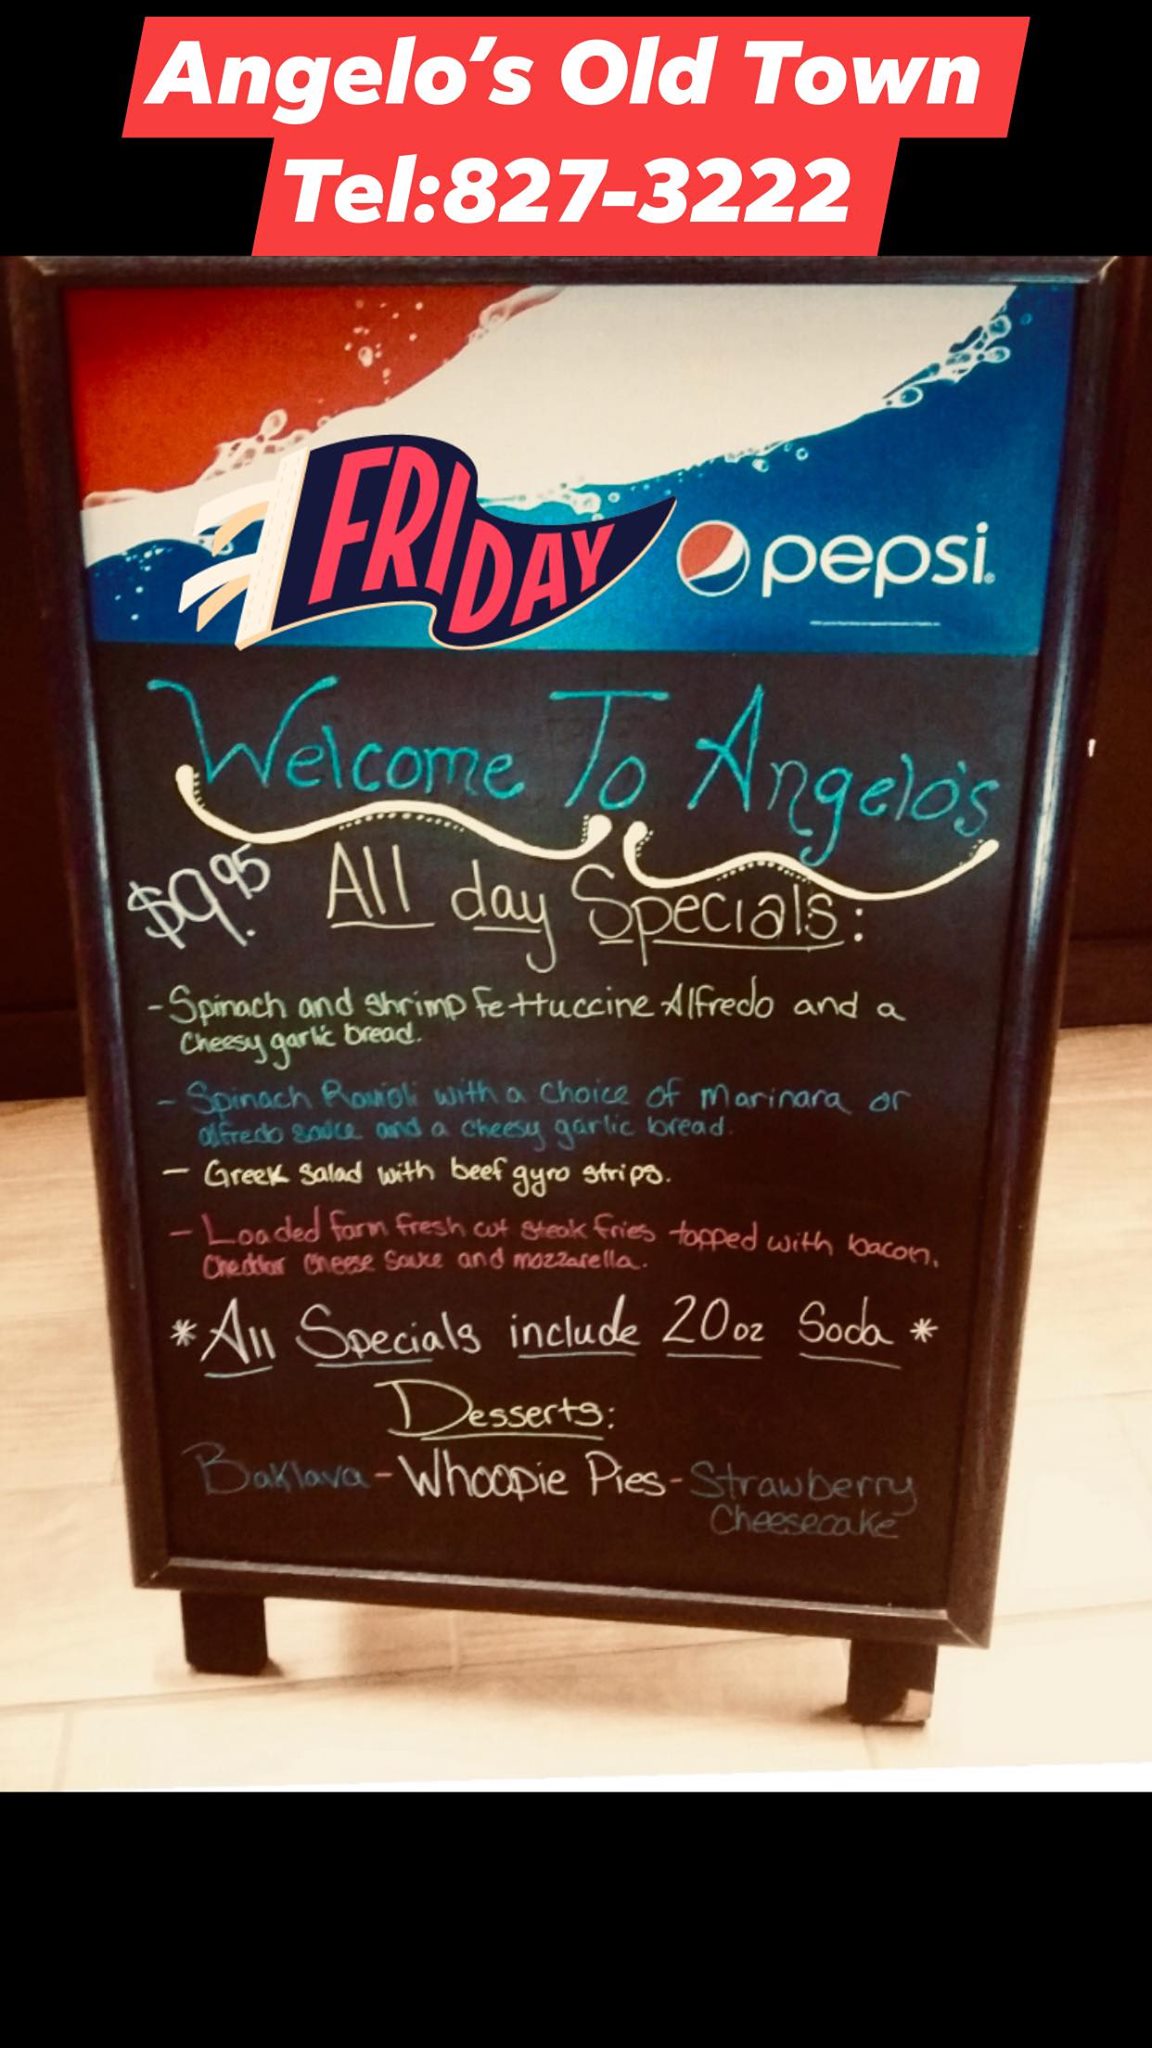 Angelo's Old Town
Tel:827-3222
FRIDAY
pepsi
Welcome To Angelo's
$9.95 All day Specials:
- Spinach and shrimp fettuccine Alfredo and a
cheesy garlic bread.
- Spinach Ravioli with a choice of marinara or
alfredo sauce and a cheesy garlic bread.
- Greek Salad with beef gyro strips.
- Loaded farm fresh cut steak fries topped with bacon,
Cheddar cheese sauce and mozzarella.
* All Specials include 20oz Soda *
Desserts:
Baklava - Whoopie Pies - Strawberry
Cheesecake